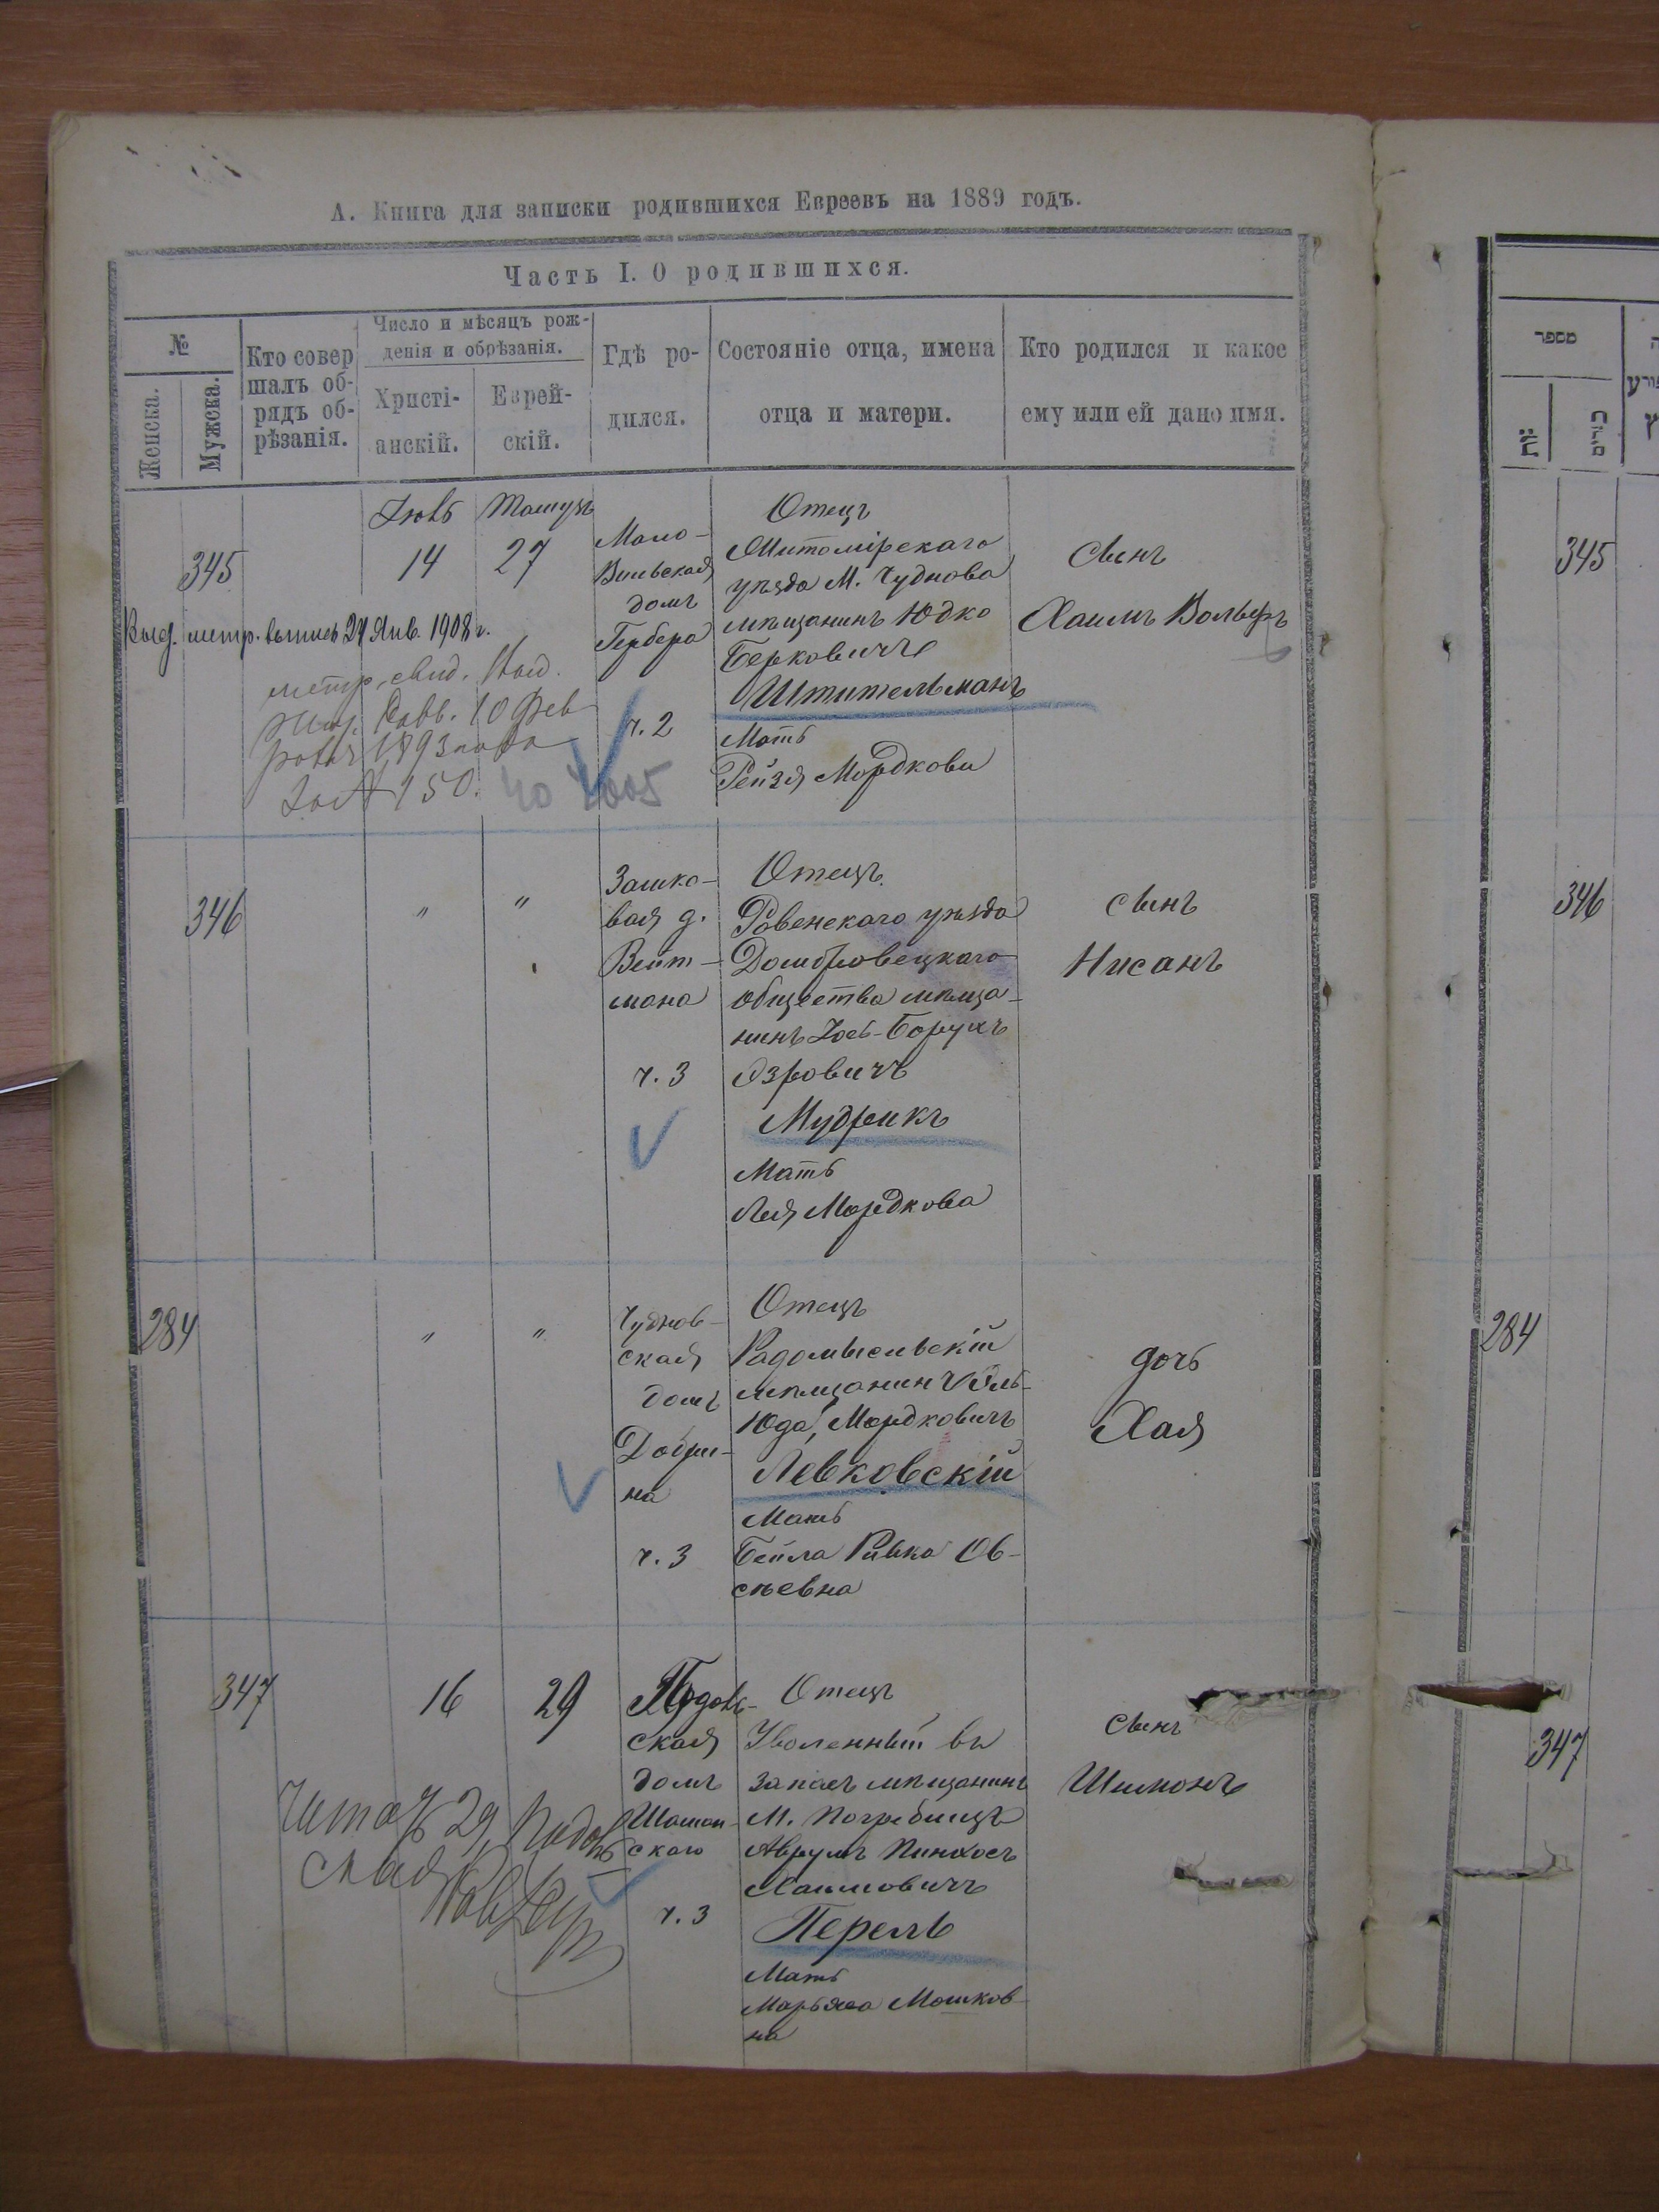 А. Книга для записки родившихся Евреевъ на 1889 годъ.
Часть I. О родившихся.
№
Женска.
Мужска.
Кто совер
шалъ об-
рядъ об-
рѣзанія.
Число и мѣсяцъ рож-
денія и обрѣзанія.
Христі-
анскій.
Еврей-
скій.
Гдѣ ро-
дился.
Состояніе отца, имена
отца и матери.
Кто родился и какое
ему или ей дано имя.
345
Іюль
14
Тамузъ
27
Мало-
Вильская
домъ
Гербера
ч. 2
Отецъ
Житомірскаго
уѣзда М. Чуднова
мѣщанинъ Юдко
Берковичъ
Штительманъ
Мать
Рейзя Мордкова
Сынъ
Хаимъ Вольфъ
Выд. метр. выпись 29 Янв. 1908 г.
метр. свид.
Жит. Равв. 10 Фев
раля 1893 года
За № 150.
346
"
"
Замко-
вая д.
Вейт-
мана
ч. 3
Отецъ
Ровенскаго уѣзда
Домбровецкаго
общества мѣща-
нинъ Іось-Борухъ
Озровичъ
Мудрикъ
Мать
Лея Мордкова
сынъ
Нисанъ
284
"
"
Чуднов-
ская
домъ
Добри-
на
ч. 3
Отецъ
Радомысльскій
мѣщанинъ Іоль-
Юда, Мордковичъ
Левковскій
Мать
Бейла Ривка Ов-
сѣевна
дочь
Хая
347
16
29
Подоль-
ская
домъ
Шоман-
скаго
ч. 3
Отецъ
Уволенный въ
запасъ мѣщанинъ
М. Погребищъ
Аврумъ Пинхосъ
Хаимовичъ
Перель
Мать
Марьяса Мошков-
на
сынъ
Шимонъ
Читать 29, Подоль
ская
מספר
345
346
284
347